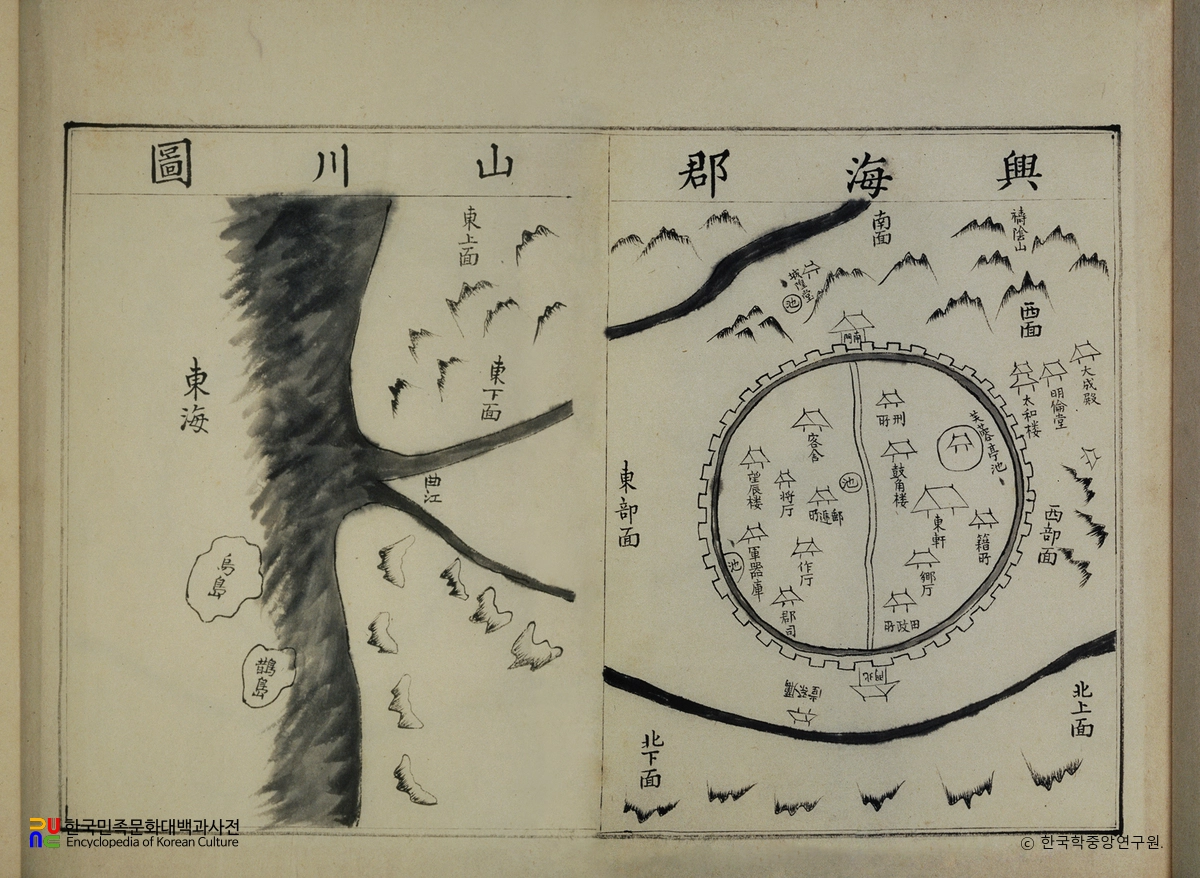 興海郡山川圖
禱陰山
南面
城隍堂
池
西面
大成殿
明倫堂
太和楼
南門
刑所
芙蓉亭池
鼓角楼
客舍
池
望辰楼
将厅
東軒
籍所
軍器庫
池
作厅
鄉厅
郡司
田政所
西部面
東部面
北門
北上面
北下面
東上面
東下面
曲江
東海
烏島
鵲島
한국민족문화대백과사전
Encyclopedia of Korean Culture
© 한국학중앙연구원.